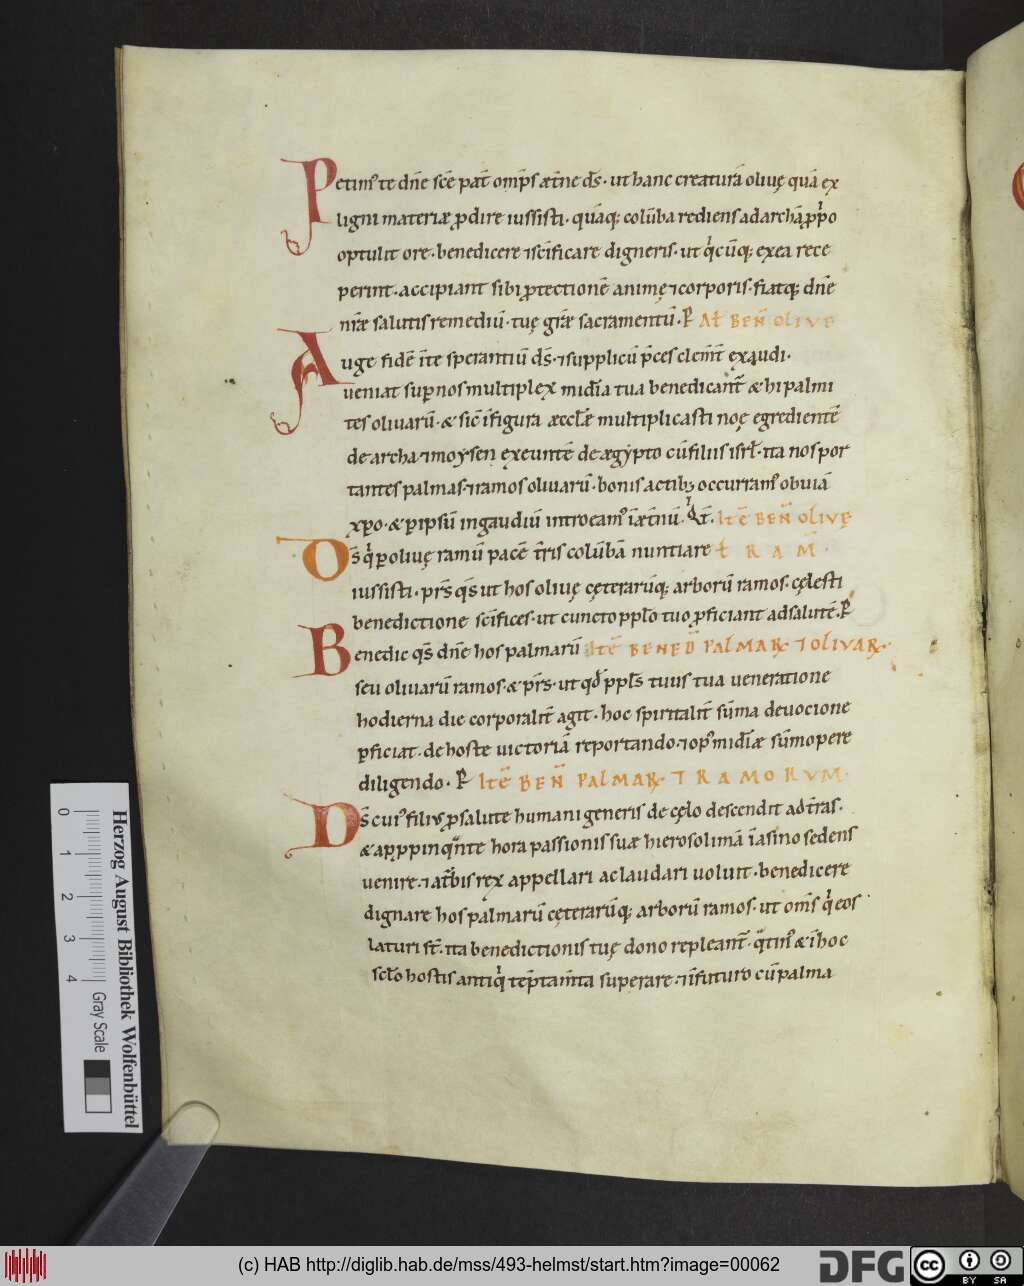 Petim᷒ te dn̄e sc̄e pat̄ omp̄s æt̄ne d̄s · ut hanc creaturā olivę quā ex
ligni materiæ ꝓdire iussisti · quāq; colūba rediens ad archā ꝓprio
optulit ore · benedicere ⁊ sc̄ificare digneris · ut qͥcūq; ex ea rece
perint · accipiant sibi ꝓtectionē animę ⁊ corporis · fiatq; dn̄e
nr̄æ salutis remediū · tuę gr̄æ sacramentū · P̱ AŁ BEÑ OLIVE
Auge fidē in̄ te sperantiū d̄s · ⁊ supplicū p̄ces clem̄t exaudi ·
veniat sup̱ nos multiplex mid̄ia tua benedicant̄ & hi palmi
tes olivarū · & sic̄ ī figura æccl̄æ multiplicasti noę egredientē
de archa ⁊ moysen exeuntē de ægypto cū filiis isrł · ita nos por
tantes palmas ⁊ ramos olivarū · bonis actib; occurram᷒ obviā
xp̄o · & p̱ ipsū in gaudiū introeam᷒ īæt̄nū · Qͥ t̄ · ITĒ BEÑ OLIVĘ
Ds̄ qͥ p̱ olivę ramū pacē t̄ris colūbā nuntiare Ł RAM̄ ·
iussisti · p̄rs q̄s ut hos olivę cęterarūq; arborū ramos · cęlesti
benedictione sc̄ifices · ut cuncto pp̄lo tuo ꝓficiant ad salutē · P̱
Benedic q̄s dn̄e hos palmarū ITĒ BENED̄ PALMAꝜ ⁊ OLIVAꝜ ·
seu olivarū ramos · & p̄rs · ut qd̄ pp̄ls tuus tua veneratione
hodierna die corporalit̄ agit · hoc spiritalit̄ sūma devocione
ꝑficiat · de hoste victoriā reportando · ⁊ op᷒ mid̄iæ sūmopere
diligendo · P̱ ITĒ BEÑ PALMAꝜ · ⁊ RAMORVM ·
Ds̄ cui᷒ filius ꝓ salute humani generis de cęlo descendit ad t̄ras ·
& app̱ppinqͣnte hora passionis suæ hierosolimā ī asino sedens
venire · ⁊ a tͬbis rex appellari ac laudari voluit · benedicere
dignare hos palmarū cęterarūq; arborū ramos · ut om̄s qͥ eos
laturi st̄ · ita benedictionis tuę dono repleant̄ · qͣtin᷒ & ī hoc
scl̄o hostis antiqͥ tēptam̄ta superare · ⁊ in futuro cū palma
Herzog August Bibliothek Wolfenbüttel
0 1 2 3 4 Gray Scale
(c) HAB http://diglib.hab.de/mss/493-helmst/start.htm?image=00062
DFG cc BY SA